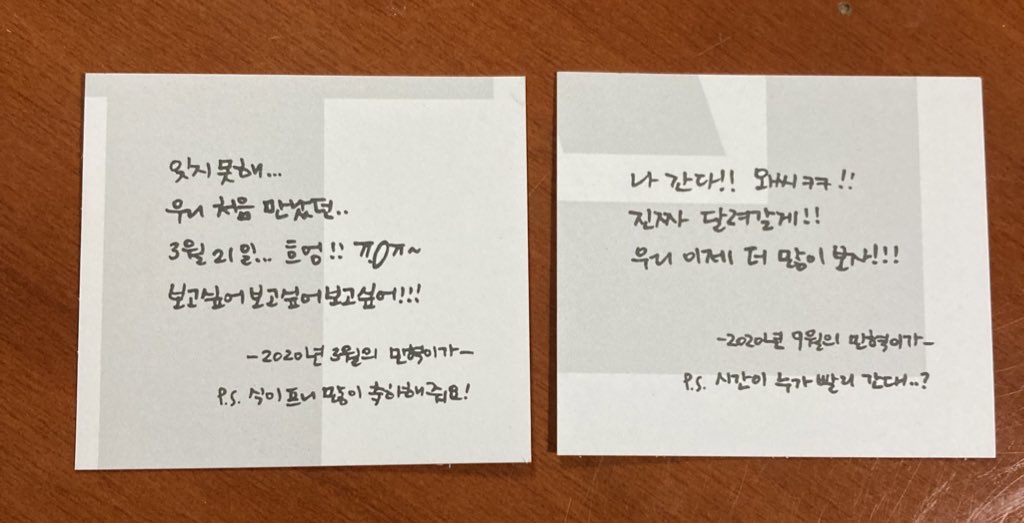 잊지 못해...
우리 처음 만났던..
3월 21일... 흐엉!! ㅠOㅠ~
보고싶어보고싶어보고싶어!!!
-2020년 3월의 민혁이가-
P.S. 식이프니 많이 축하해줘요!
나 간다!! 와씨ㅋㅋ!!
진짜 달려갈게!!
우리 이제 더 많이 보자!!!
-2020년 9월의 민혁이가-
P.S. 시간이 누가 빨리 간대..?